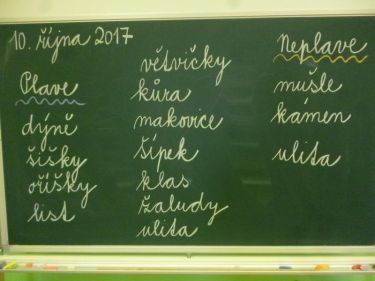 10. října 2017
Plave
dýně
šišky
oříšky
list
větvičky
kůra
makovice
šípek
klas
žaludy
ulita
Neplave
mušle
kámen
ulita